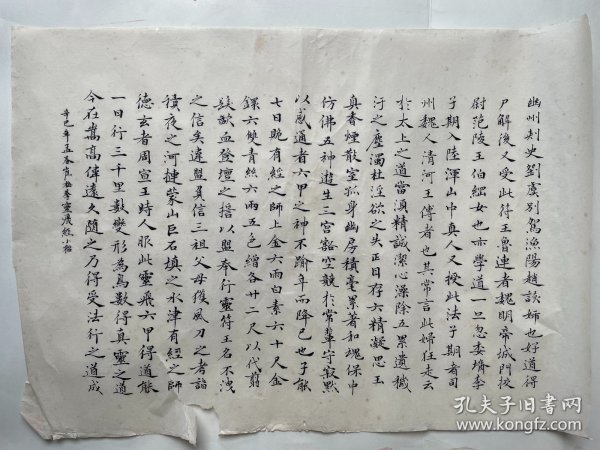 幽州刺史劉虞別駕漁陽趙該姊也好道得
尸解後又受此符王魯連者魏明帝城門挍
尉范陵王伯綱女也亦學道一旦忽委壻李
子期入陸渾山中真人又授此法子期者司
州魏人清河王傅者也其常言此婦狂走云
於太上之道當須精誠潔心澡除五累遺穢
汙之塵濁杜淫欲之失正目存六精凝思玉
真香煙散室孤身幽房積毫累著和魂保中
仿佛五神遊生三宮豁空競於常輩守寂默
以感通者六甲之神不踰年而降已也子能
七日晚有經之師上金六兩白素六十尺金
鐶六雙青絲六兩五色繒各廿二尺以代翦
髮歃血登壇之誓以盟奉行靈符玉名不洩
之信矣違盟負信三祖父母獲風刀之考詣
積夜之河摙蒙山巨石填之水津有經之師
德玄者周宣王時人服此靈飛六甲得道能
一日行三千里數變形為鳥獸得真靈之道
今在嵩高偉遠久隨之乃得受法行之道成
辛巳年孟春
孔夫子旧书网
www.kongfz.com